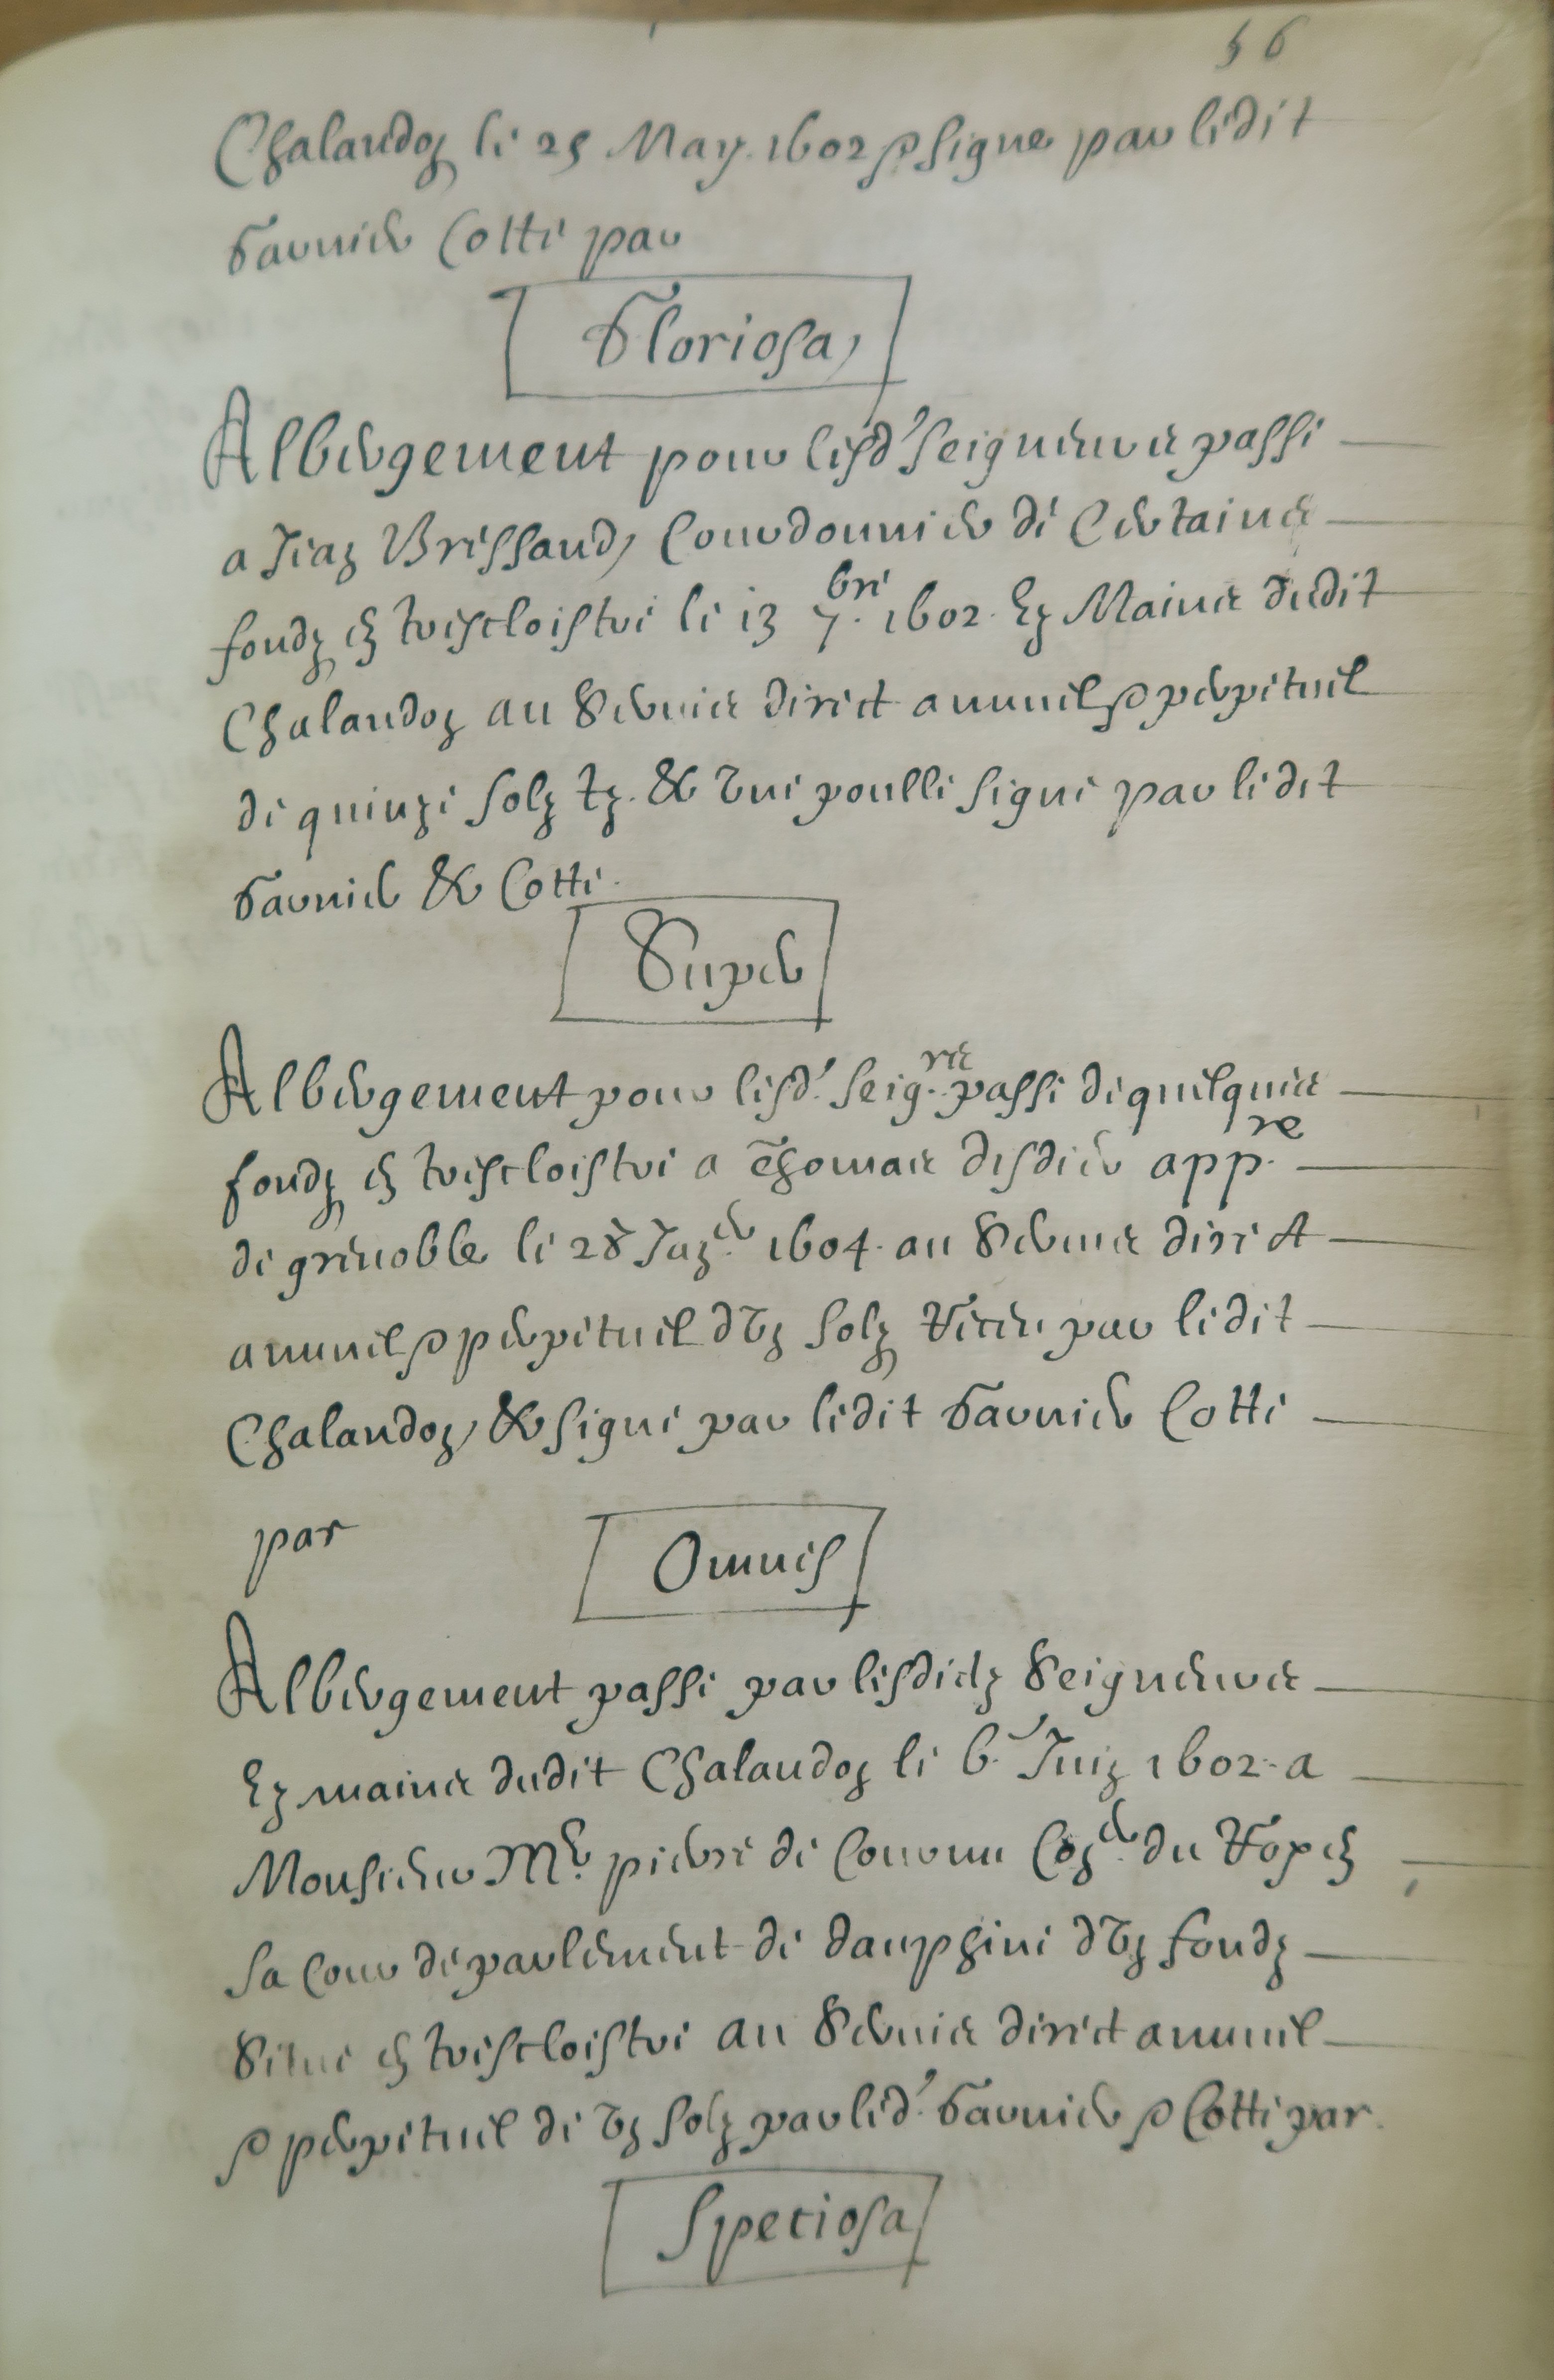 56
Chalandon le 25 May 1602 & signe par ledit
Garnier Cotte par
Gloriosa
Albergement pour lesd' seigneurs passe
a Jean Brissaud, Courdonnier de Certains
fondz en trescloistre le 13 7.bre 1602. Ez Mains dudit
Chalandon au Servis direct annuel & perpetuel
de quinze solz tz. & une poulle signe par ledit
Garnier & Cotte.
Super
Albergement pour lesd' seig.rs passe de quelques
fondz en trescloistre a Thomas disdier app.re
de grenoble le 28 Jan.er 1604. au Servis direct
annuel & perpetuel d'un solz Receu par ledit
Chalandon, & signe par ledit Garnier Cotte
par
Omnes
Albergement passe par lesdictz Seigneurs
Ez mains dudit Chalandon le 6. Juin 1602. a
Monsieur Mr. pierre de Cornu Con.er du Roy en
sa Cour de parlement de dauphine d'un fondz
Situe en trescloistre au Servis direct annuel
& perpetuel de un solz par led'. Garnier & Cotte par
Speciosa